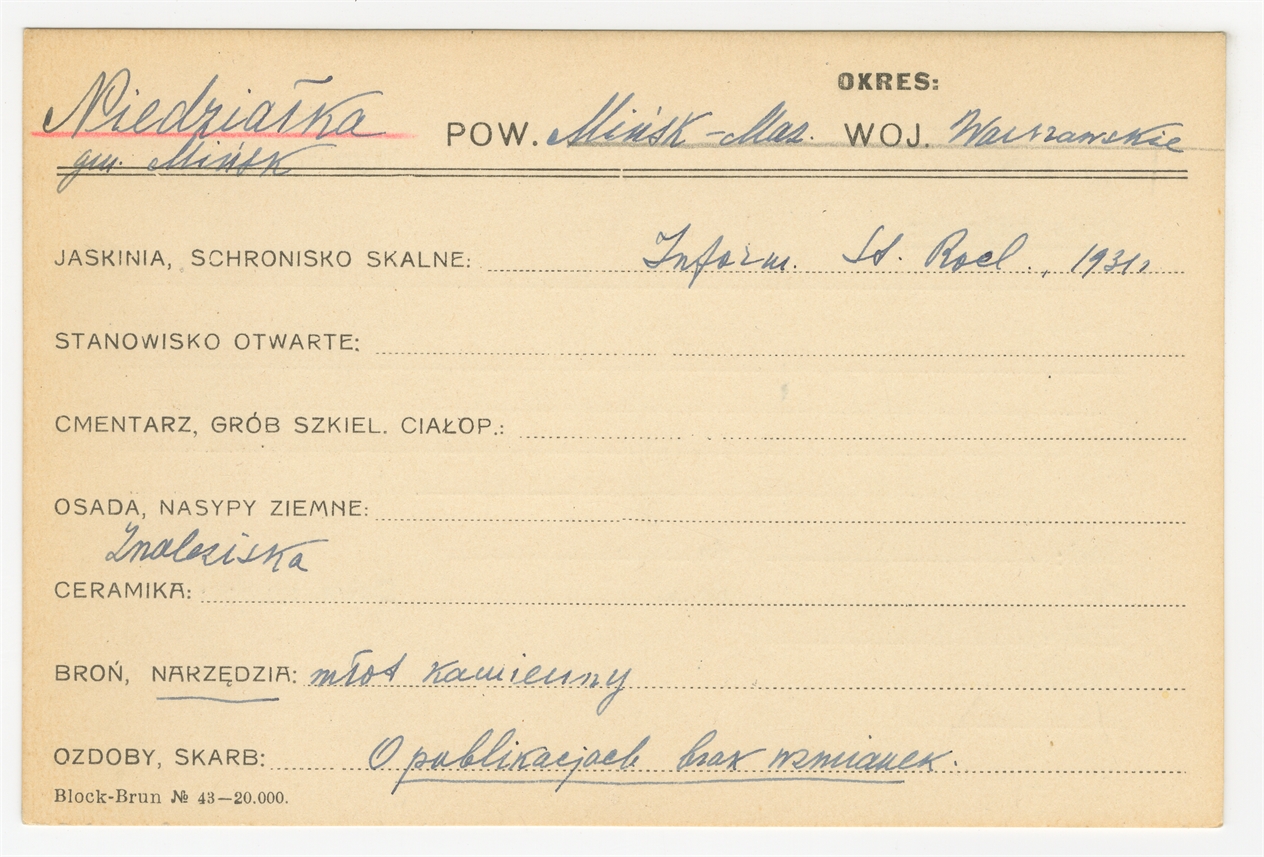 OKRES:
Niedziałka POW. Mińsk-Maz. WOJ. Warszawskie
gm. Mińsk
JASKINIA, SCHRONISKO SKALNE: Inform. St. 1931r
STANOWISKO OTWARTE:
CMENTARZ, GRÓB SZKIEL. CIAŁOP.:
OSADA, NASYPY ZIEMNE:
Znaleziska
CERAMIKA:
BROŃ, NARZĘDZIA: młot kamienny
OZDOBY, SKARB: O publikacjach brak wzmianek.
Block-Brun № 43—20.000.